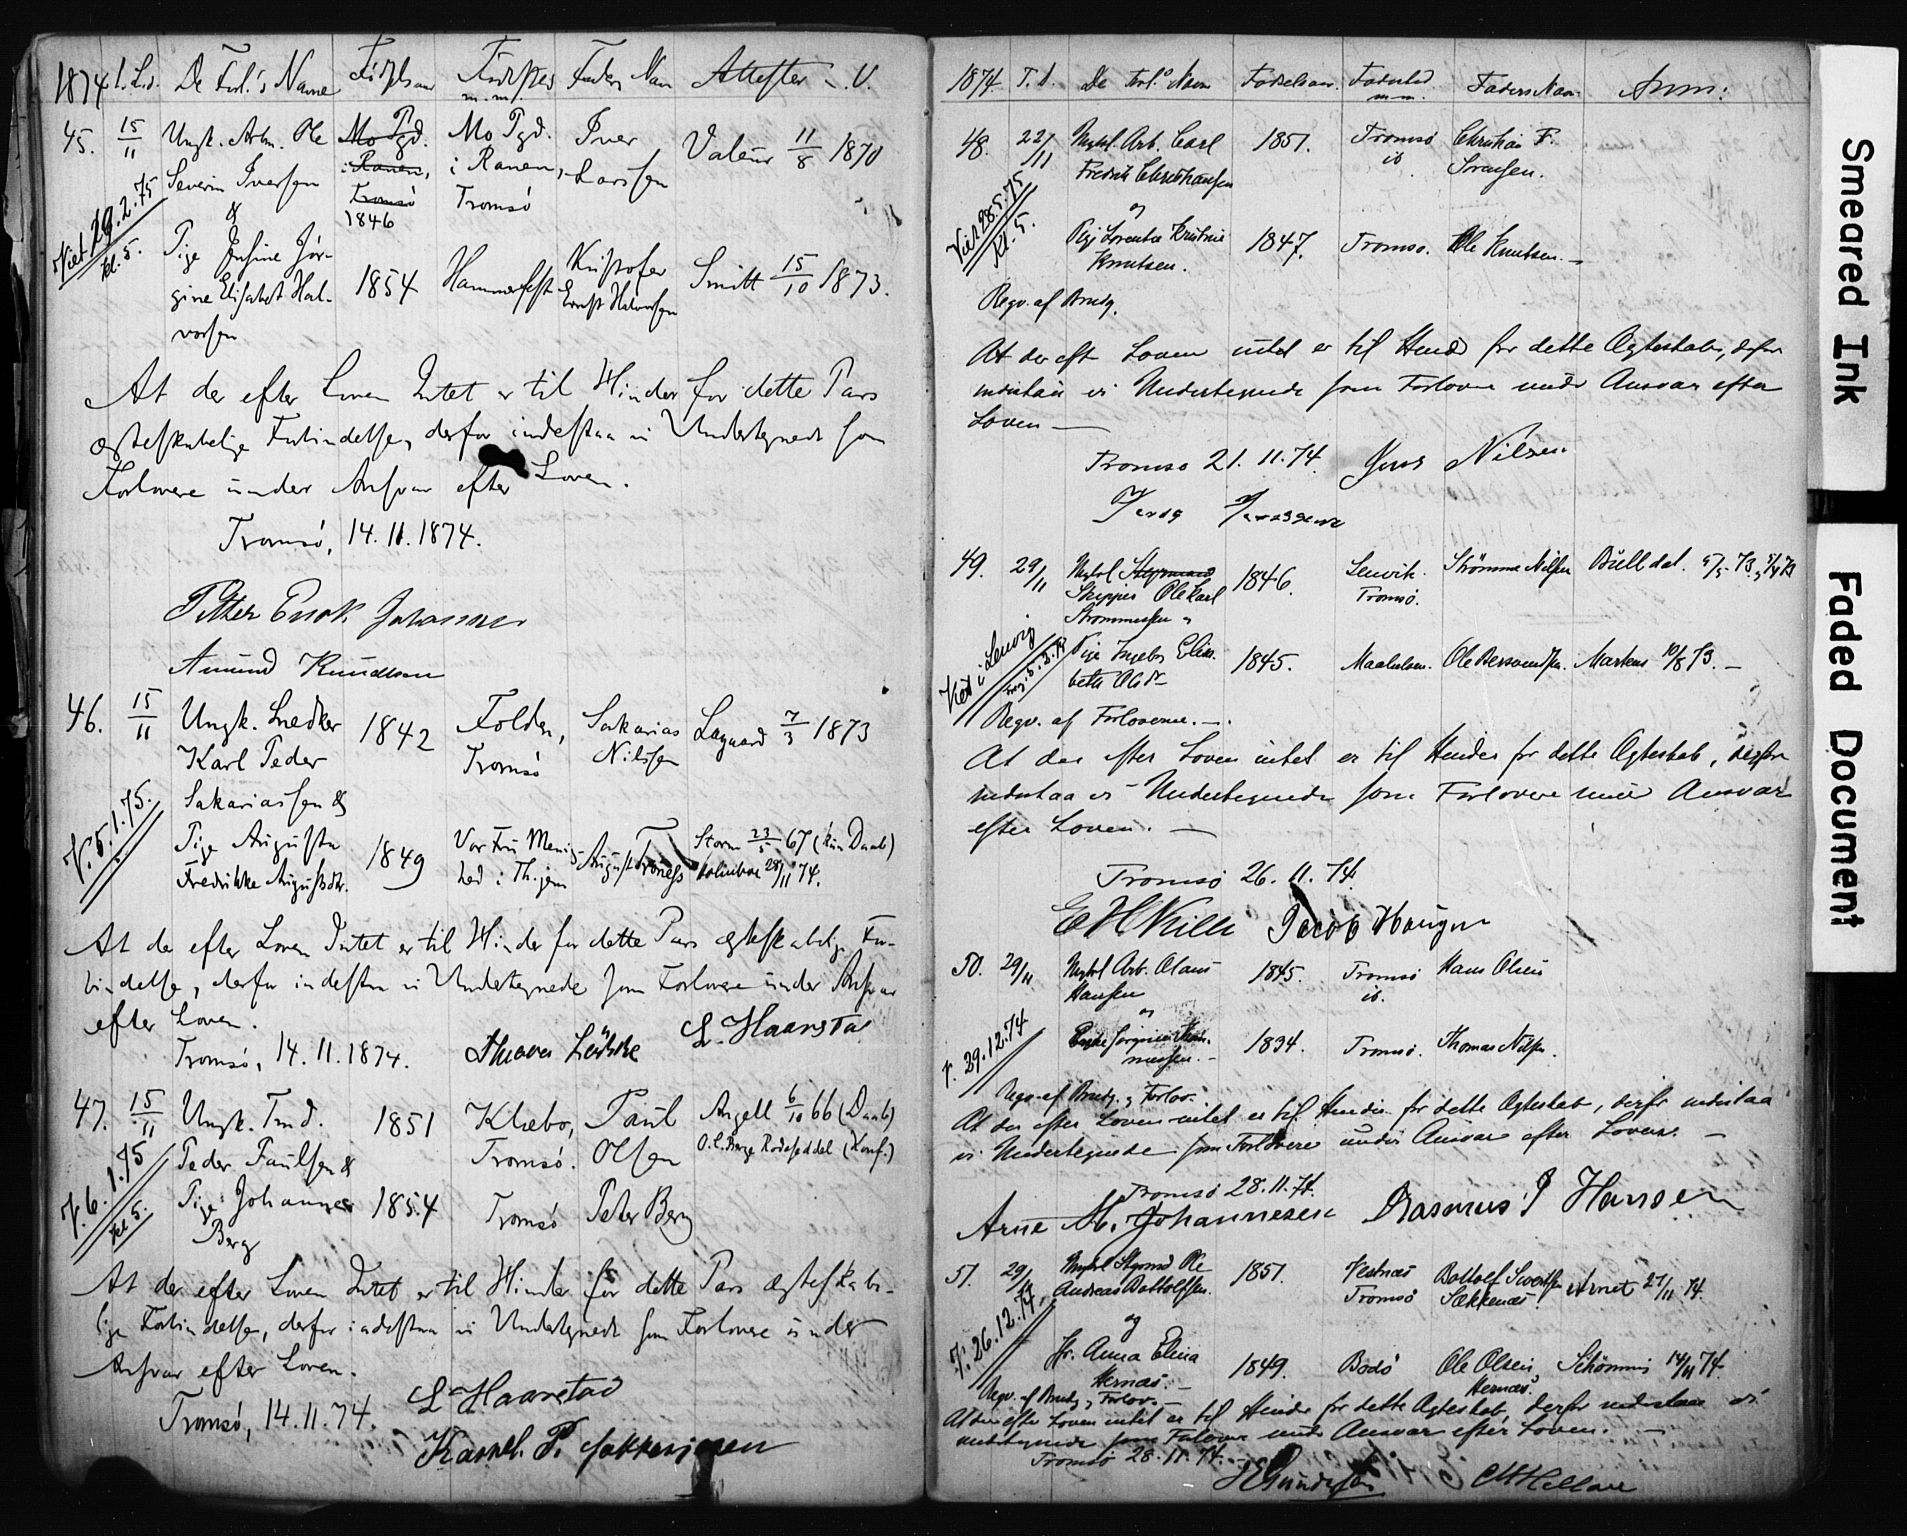 1874 De Forl.s Navne Fødselsaar Fødested Faders Navn Attester V.
m.m.
45. 15/11 Ungk. Arbm. Ole Mo Pgd. Mo Pgd. Iver Valeur 11/8 1870
Severin Iversen i Ranen, i Ranen, Larssen
& Tromsø Tromsø
1846
Viet 19.2.75
kl. 5.
Pige Jensine Jør- Kristofer
gine Elisabet Hal- 1854 Hammerfest Ernst Halvorsen Smitt 15/10 1873.
vorsen
At der efter Loven Intet er til Hinder for dette Pars
ægteskabelige Forbindelse, derfor indestaa vi Undertegnede som
Forlovere under Ansvar efter Loven.
Tromsø, 14.11.1874.
Petter Enok Johansen
Amund Knudsen
46. 15/11 Ungk. Snedker 1842 Folden, Sakarias Lagaard 7/3 1873
Karl Peder Tromsø Nilssen
Sakariassen &
V. 5.1.75.
Pige Augusta 1849 Vor Fru Menig- August Storm 23/5 67 (kun Daab)
Fredrikke Augustsdtr. hed i Th.jem 28/11 74.
At der efter Loven Intet er til Hinder for dette Pars ægteskabelige For-
bindelse, derfor indestaa vi Undertegnede som Forlovere under Ansvar
efter Loven.
Tromsø, 14.11.1874. L. Haarstad
47. 15/11 Ungk. Tmd. 1851 Klæbo, Paul Angell 6/10 66 (Daab)
Peder Paulsen & Tromsø. Olsen Rodeseddel (Konf.)
V. 6.1.75
kl 5.
Pige Johanna 1854 Tromsø Peter Berg
Berg
At der efter Loven Intet er til Hinder for dette Pars ægteskabe-
lige Forbindelse, derfor indestaa vi Undertegnede som Forlovere under
Ansvar efter Loven.
Tromsø, 14.11.74. L Haarstad
1874. T. L. De Forl.s Navn Fødselsaar. Fødested Faders Navn. Anm:
m.m.
48. 22/11 Ungkl. Arb. Carl 1851. Tromsø Christian F.
Fredrik Christiansen ib. Sørensen.
og
Viet 28.5.75
Kl. 5.
Pige Lorentze Kristine 1847. Tromsø. Ole Knutsen.
Knutsen.
Reqv. af Brudg.
At der eft Loven intet er til Hinder for dette Ægteskab, derfor
indestaa vi Undertegnede som Forlovere under Ansvar efter
Loven
Tromsø 21.11.74. Jens Nilsen
49. 29/11 Ungkl Styrmand 1846. Lenvik. Strømme Nilsen Bull dat.
Skipper Ole Karl Tromsø.
Strømmesen &
Viet i Lenvig
Pige Ingebor Elisa- 1845. Maalselven. Markus 10/8 73.
beth Olsdr
Reqv. af Forloverne.
At der efter Loven intet er til Hinder for dette Ægteskab, derfor
indestaa vi Undertegnede som Forlovere under Ansvar
efter Loven.
Tromsø 26.11.74.
Jacob Haugen
50. 29/11 Ungkl Arb. Olaus 1845. Tromsø Hans Olsen
Hansen ib.
og
V. 29.12.74
Enke Jørgine Thom- 1834. Tromsø. Thomas Nilsen.
messen.
Reqv. af Brudg. & Forlov.
At der efter Loven intet er til Hinder for dette Ægteskab, derfor indestaa
vi Undertegnede som Forlovere under Ansvar efter Loven.
Tromsø 28.11.74.
Arne M. Johannesen Rasmus P Hansen
51. 29/11 Ungkl Styrmd Ole 1851. Vestnæs Bottolf Sivertsen Arnet 27/11 74.
Andreas Bottolfsen. Tromsø Sækkenæs.
V. 26.12.74.
og
Fr. Anna Elina 1849. Bodø Ole Olsen Schønning 14/11 74.
Hernæs. Hernæs.
Reqv. af Brudg. & Forlov.
At der efter Loven intet er til Hinder for dette Ægteskab, derfor indestaa vi
undertegnede som Forlovere under Ansvar efter Loven.
Tromsø 28.11.74.
Smeared Ink
Faded Document